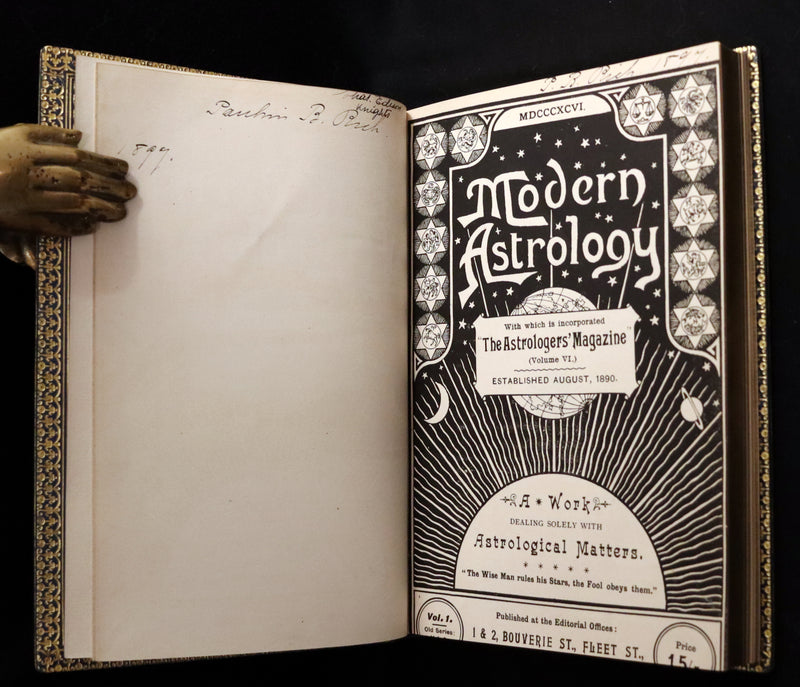 Knights
1897.
P. B. Rich 1897
MDCCCXCVI.
Modern
Astrology
With which is incorporated
"The Astrologers' Magazine"
(Volume VI.)
ESTABLISHED AUGUST, 1890.
A * Work
DEALING SOLELY WITH
Astrological Matters.
* * * * *
"The Wise Man rules his Stars, the Fool obeys them."
Vol. 1.
Old Series:
Published at the Editorial Offices:
1 & 2, BOUVERIE ST., FLEET ST.,
Price
15/-